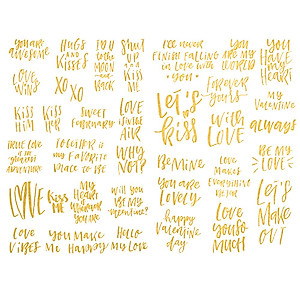 you are
awesome
HUGS
and
KISSES
TO
YOU
to the
MOON
and
BACK
Shut
UP
and
KISS
ME
LOVE
WINS
XO
XO
KISS
HIM
KISS
HER
SWEET
FEBRUARY
LOVE
IS IN THE
AIR
TRUE LOVE
is the
greatest
ADVENTURE
TOGETHER is
my FAVORITE
PLACE TO BE
WHY
NOT?
LOVE
Kiss
ME
MY
HEART
is
WHEREVER
YOU ARE
WILL YOU
BE MY
VALENTINE?
Love
VIBES
Hello
Love
YOU MAKE
ME
HAPPY
KISS
MY
LOVE
I'll never
FINISH FALLING
in LOVE WITH
YOU
YOU
ARE MY
WORLD
YOU
HAVE
MY
HEART
FOREVER
yours
Let's
kiss
WITH
LOVE
MY
VALENTINE
always
BE MINE
LOVE
MAKES
EVERYTHING
BETTER
BE MY
LOVE
YOU ARE
LOVELY
happy
VALENTINE
day
Love
YOU SO
MUCH
Let's
MAKE
OUT